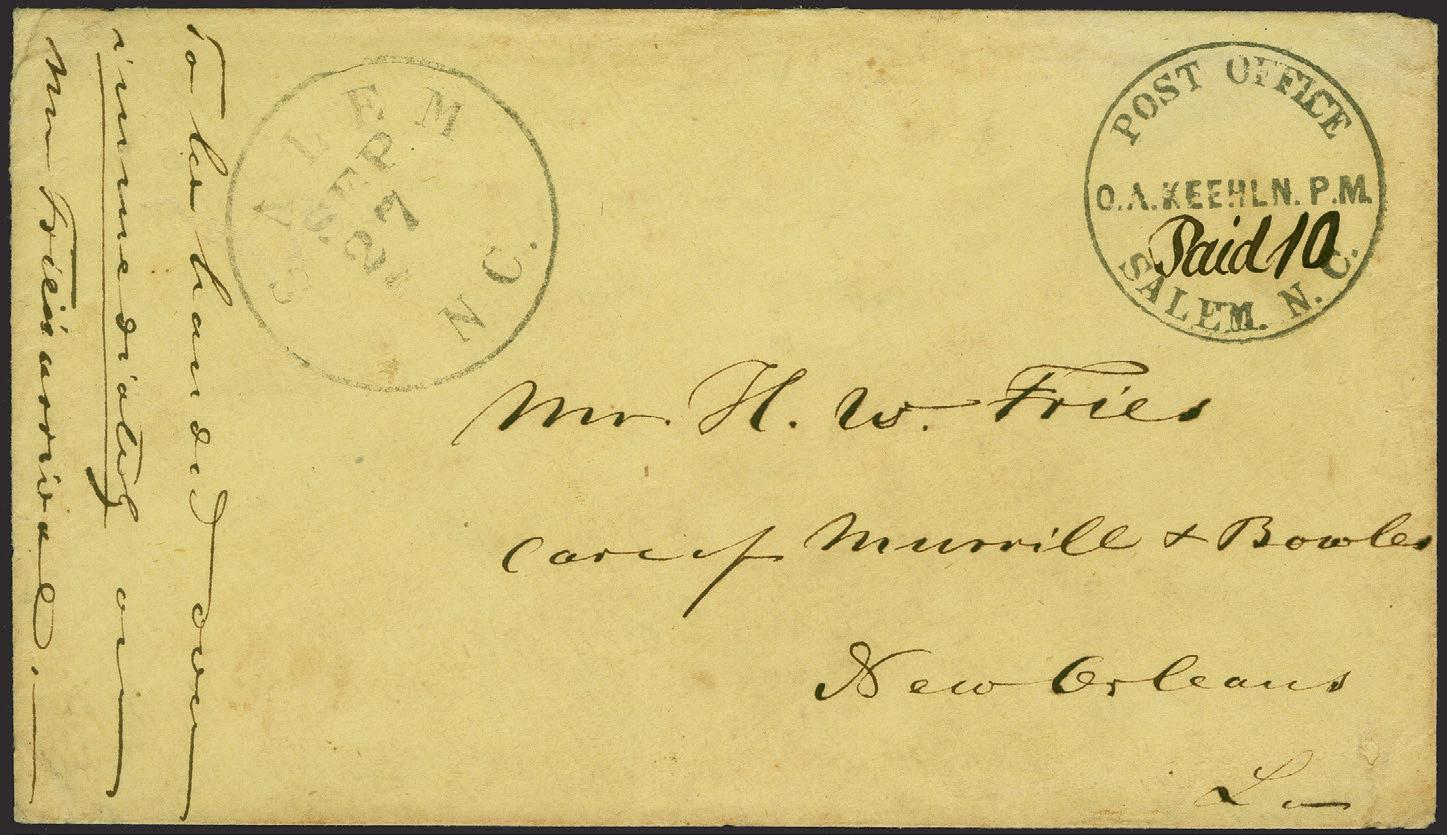 To be handed over
immediately on
Mr Fries' arrival.
SALEM N.C.
SEP
27
POST OFFICE
O.A.KEEHLN. P.M.
Paid 10
SALEM. N. C.
Mr. H. W. Fries
Care of Murrill & Bowles
New Orleans
La